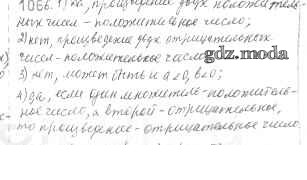 1066. 1) да, произведение двух положитель-
ных чисел - положительное число;
2) нет, произведение двух отрицательных
чисел - положительное число
gdz.moda
3) нет, может быть и a<0, b<0;
4) да, если один множитель - положитель-
ное число, а второй - отрицательное,
то произведение - отрицательное число.